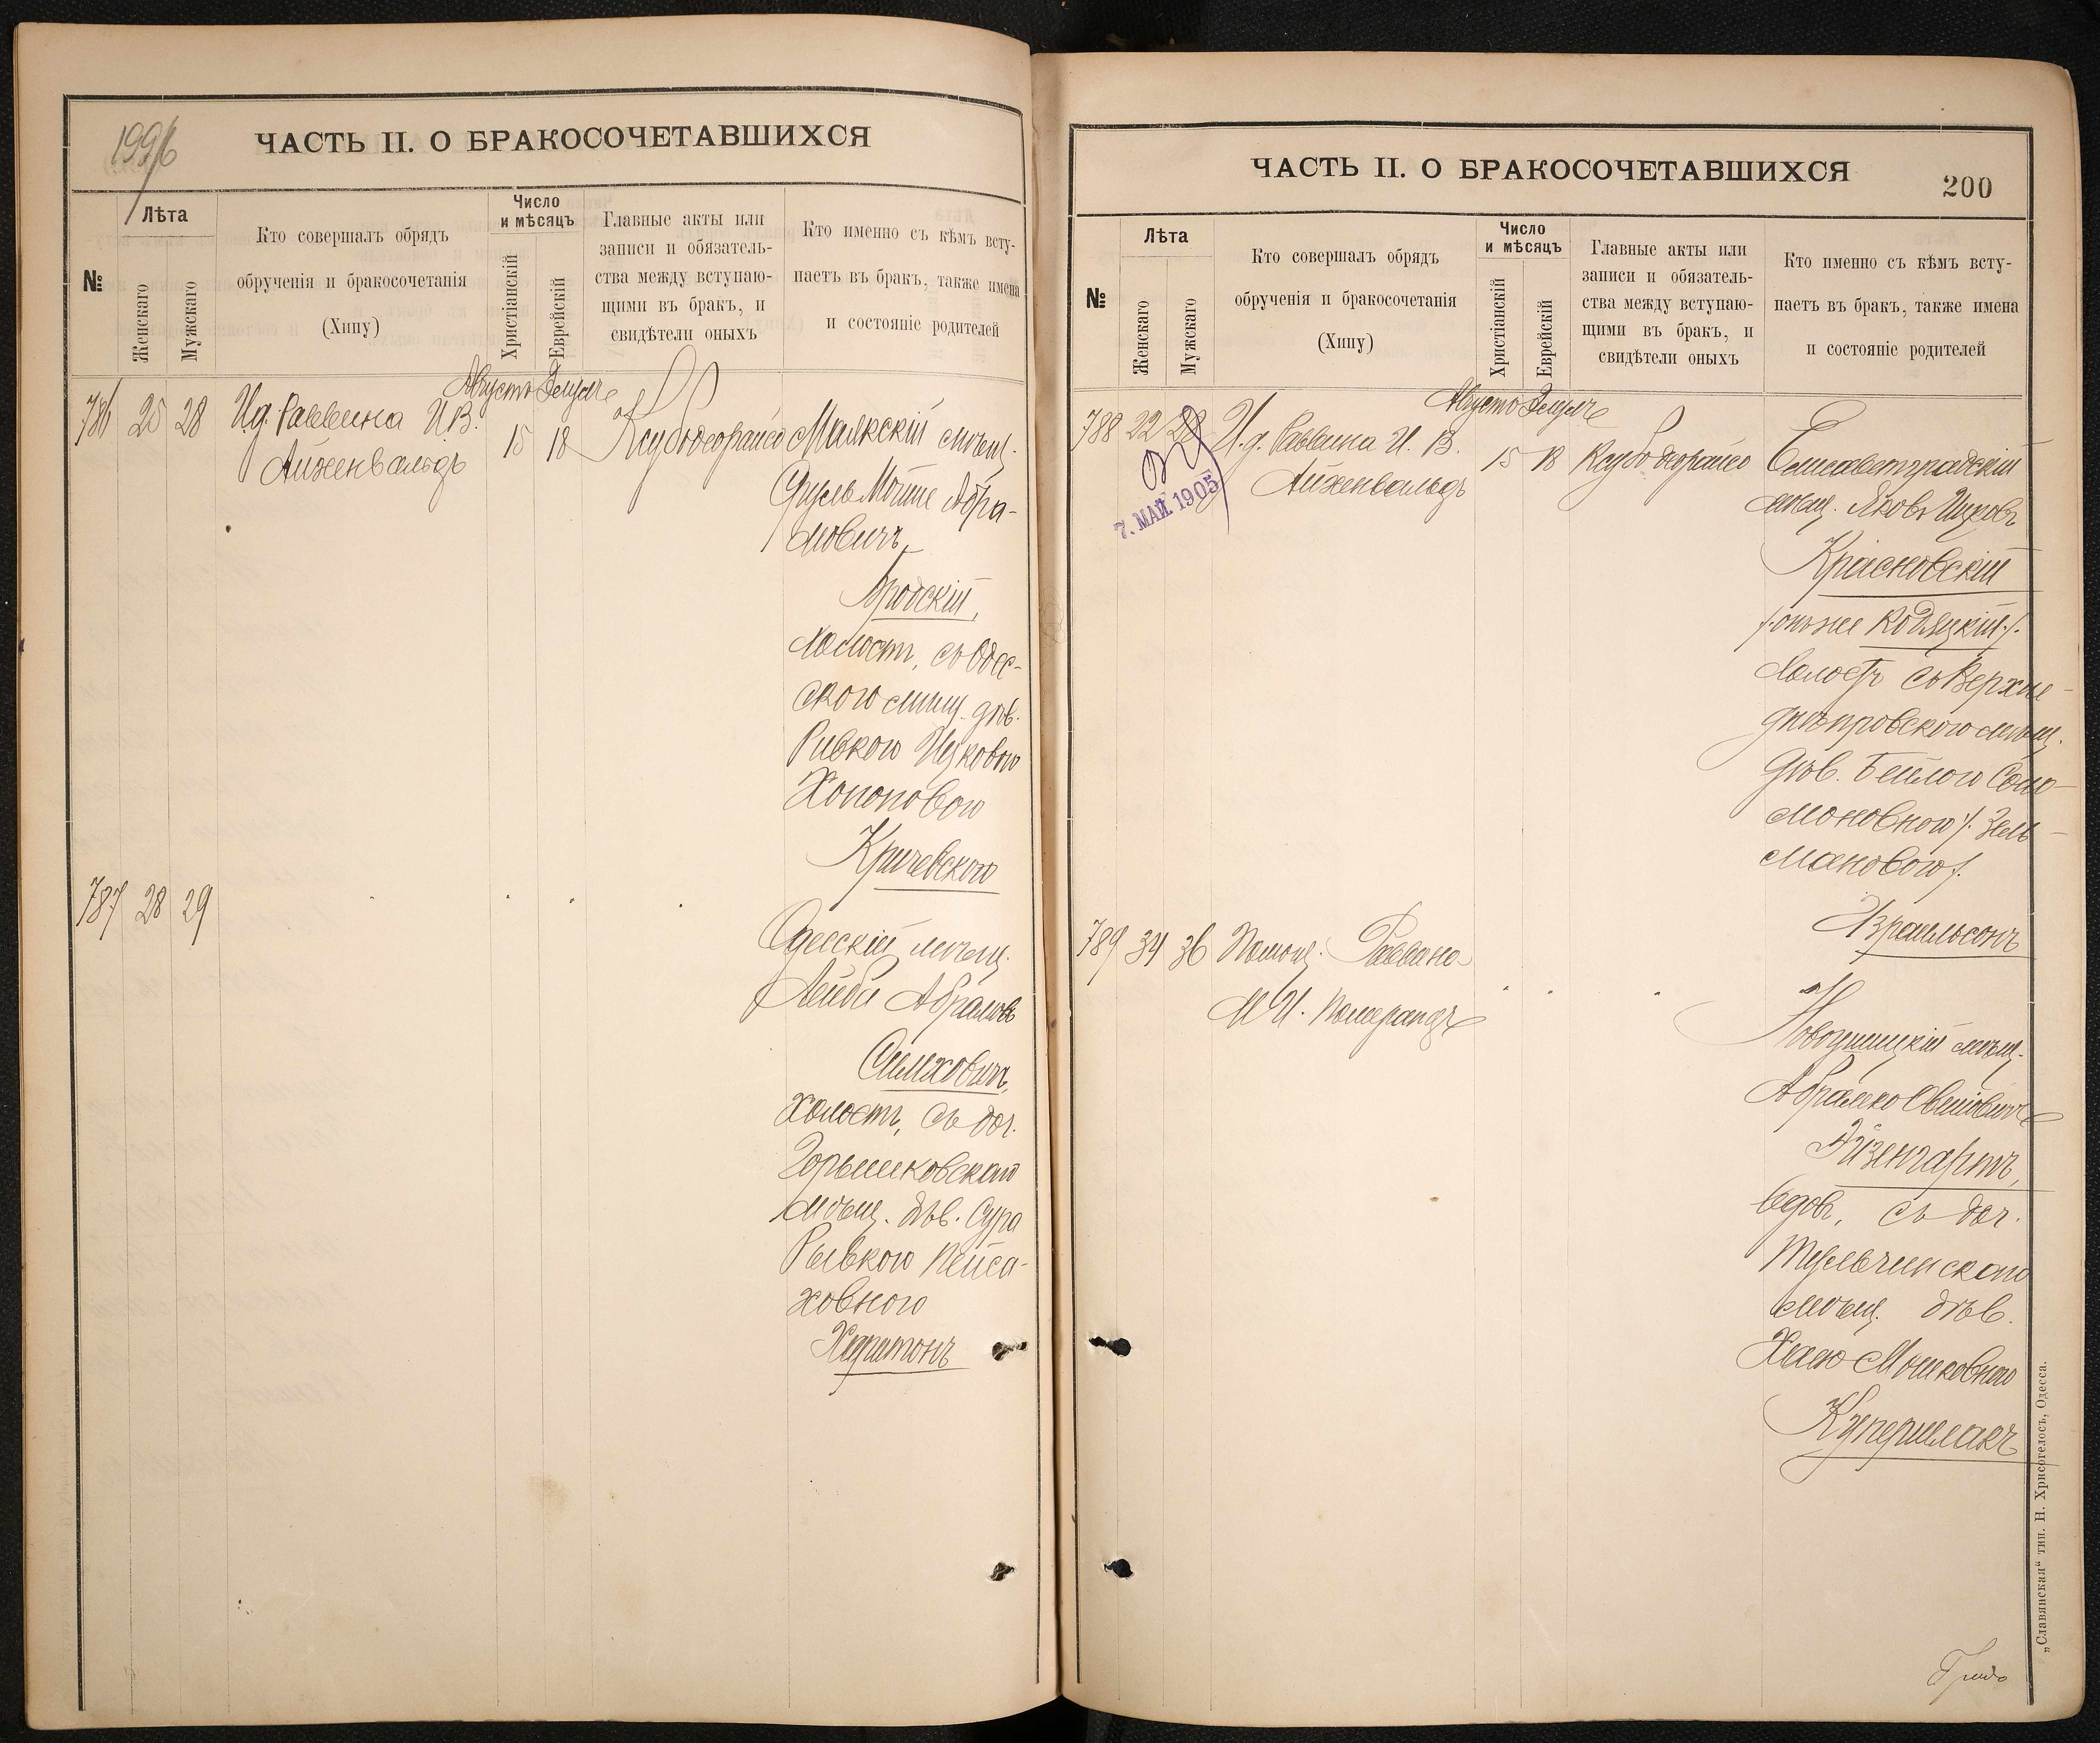 199/б
ЧАСТЬ II. О БРАКОСОЧЕТАВШИХСЯ
№
Лѣта
Женскаго
Мужскаго
Кто совершалъ обрядъ
обрученія и бракосочетанія
(Хипу)
Число
и мѣсяцъ
Христіанскій
Еврейскій
Главные акты или
записи и обязатель-
ства между вступаю-
щими въ бракъ, и
свидѣтели оныхъ
Кто именно съ кѣмъ всту-
паетъ въ бракъ, также имена
и состояніе родителей
Августъ Элулъ
786 25 28 И.д. Раввина И.В.
Айхенвальдъ
15 18
Ксубо деорайсо
Маякскій мѣщ.
Сруль Мойше Абра-
мовичъ
Бродскій,
холостъ, съ Одес-
скою мѣщ. дѣв.
Ривкою Ицковою
Хононовою
Кричевскою
787 28 29
Одесскій мѣщ.
Лейба Абрамовъ
Симховичъ,
холостъ, съ доч.
Горышковскаго
мѣщ. дѣв. Сура
Рывкою Пейса-
ховною
Харитонъ
ЧАСТЬ II. О БРАКОСОЧЕТАВШИХСЯ
200
№
Лѣта
Женскаго
Мужскаго
Кто совершалъ обрядъ
обрученія и бракосочетанія
(Хипу)
Число
и мѣсяцъ
Христіанскій
Еврейскій
Главные акты или
записи и обязатель-
ства между вступаю-
щими въ бракъ, и
свидѣтели оныхъ
Кто именно съ кѣмъ всту-
паетъ въ бракъ, также имена
и состояніе родителей
Августъ Элулъ
788 22 28 И.д. Раввина И. В.
Айхенвальдъ
7. МАЙ 1905
15 18
Ксубо деорайсо
Елисаветградскій
мѣщ. Яковъ Ицковъ
Красновскій
/:онъ же Кодяцкій:/.
холостъ съ Верхне-
днѣпровскою мѣщ.
дѣв. Бейлою Соло-
моновною /. Зель-
мановою /.
Израильсонъ
789 34 36 Помощ. Раввина
М И. Померанцъ
Новоушицкій мѣщ.
Абрамко Овшіовичъ
Айзенгартъ,
вдов., съ доч.
Тульчинскаго
мѣщ. дѣв.
Хаю Мошковною
Купершлакъ
„Славянская“ тип. Н. Хрисогелосъ, Одесса.